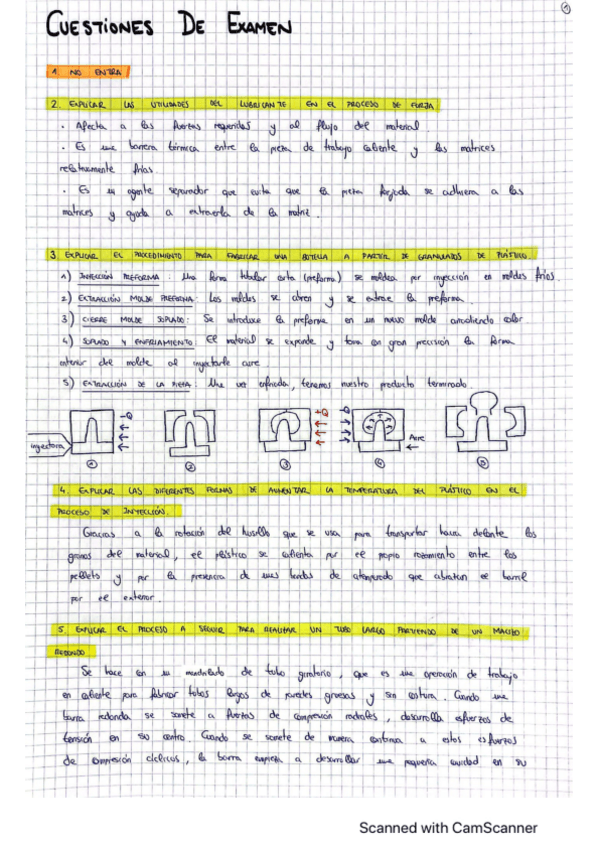 1
CUESTIONES DE EXAMEN
1. NO ENTRA
2. EXPLICAR LAS UTILIDADES DEL LUBRICANTE EN EL PROCESO DE FORJA
· Afecta a las fuerzas requeridas y al flujo del material.
· Es una barrera térmica entre la pieza de trabajo caliente y las matrices
relativamente frías.
· Es un agente separador que evita que la pieza forjada se adhiera a las
matrices y ayuda a extraerla de la matriz.
3 EXPLICAR EL PROCEDIMIENTO PARA FABRICAR UNA BOTELLA A PARTIR DE GRANULADOS DE PLÁSTICO.
1) INYECCIÓN PREFORMA: Una forma tubular corta (preforma) se moldea por inyección en moldes fríos.
2) EXTRACCIÓN MOLDE PREFORMA: Los moldes se abren y se extrae la preforma.
3) CIERRE MOLDE SOPLADO: Se introduce la preforma en un nuevo molde aplicando calor.
4) SOPLADO Y ENFRIAMIENTO El material se expande y toma con gran precisión la forma
interior del molde al inyectarle aire.
5) EXTRACCIÓN DE LA PIEZA: Una vez enfriada, tenemos nuestro producto terminado.
-Q +Q -Q
inyectora Aire
1 2 3 4 5
4. EXPLICAR LAS DIFERENTES FORMAS DE AUMENTAR LA TEMPERATURA DEL PLÁSTICO EN EL
PROCESO DE INYECCIÓN.
Gracias a la rotación del husillo que se usa para transportar hacia delante los
granos del material, el plástico se calienta por el propio rozamiento entre los
pellets y por la presencia de unas bandas de atemperado que abrazan el barril
por el exterior.
5. EXPLICAR EL PROCESO A SEGUIR PARA REALIZAR UN TUBO LARGO PARTIENDO DE UN MACIZO
REDONDO
Se hace en su mandrilado de tubo giratorio, que es una operación de trabajo
en caliente para fabricar tubos largos de paredes gruesas y sin costura. Cuando una
barra redonda se somete a fuerzas de compresión radiales, desarrolla esfuerzos de
tensión en su centro. Cuando se somete de manera continua a estos esfuerzos
de compresión cíclicos, la barra empieza a desarrollar una pequeña cavidad en su
Scanned with CamScanner